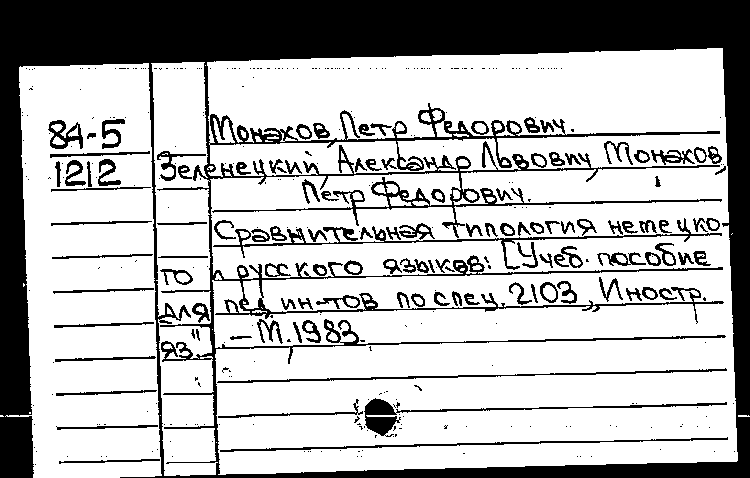 84-5 Монахов, Петр Федорович.
1212 Зеленецкий, Александр Львович, Монахов,
Петр Федорович.
Сравнительная типология немецко-
го и русского языков: [Учеб. пособие
для пед. ин-тов по спец. 2103 „Иностр.
яз."]. – М. 1983.